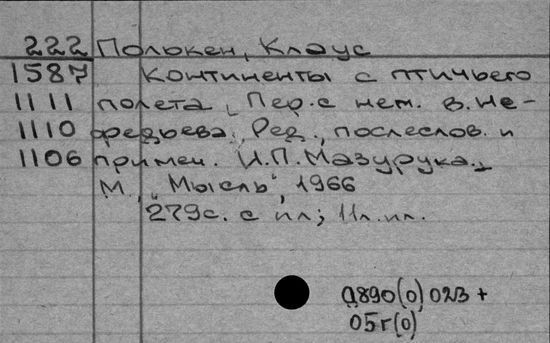 222 Полькен, Клаус
1587 Континенты с птичьего
1111 полета. Пер. с нем. В. Не-
1110 федьева. Ред., послеслов. и
1106 примеч. И.П. Мазурука.
М., "Мысль", 1966
279с. с ил; 11л. ил.
0890(0) 023 +
05г(0)